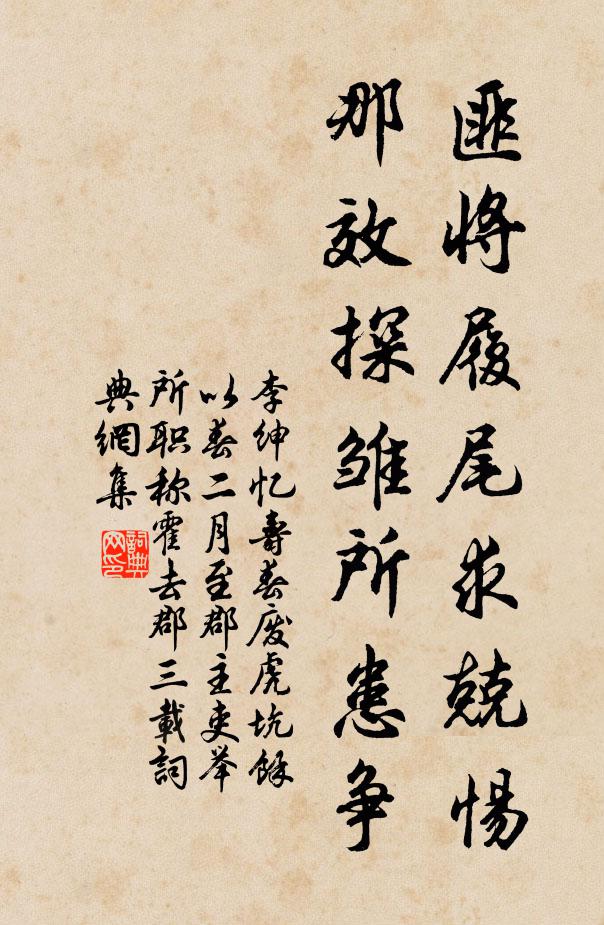 匪将履尾求兢惕
那效探雏所患争
李绅忆寿春废虎坑余
以春二月至郡主吏举
所职称霍去郡三載詞
典網集
詞典网印